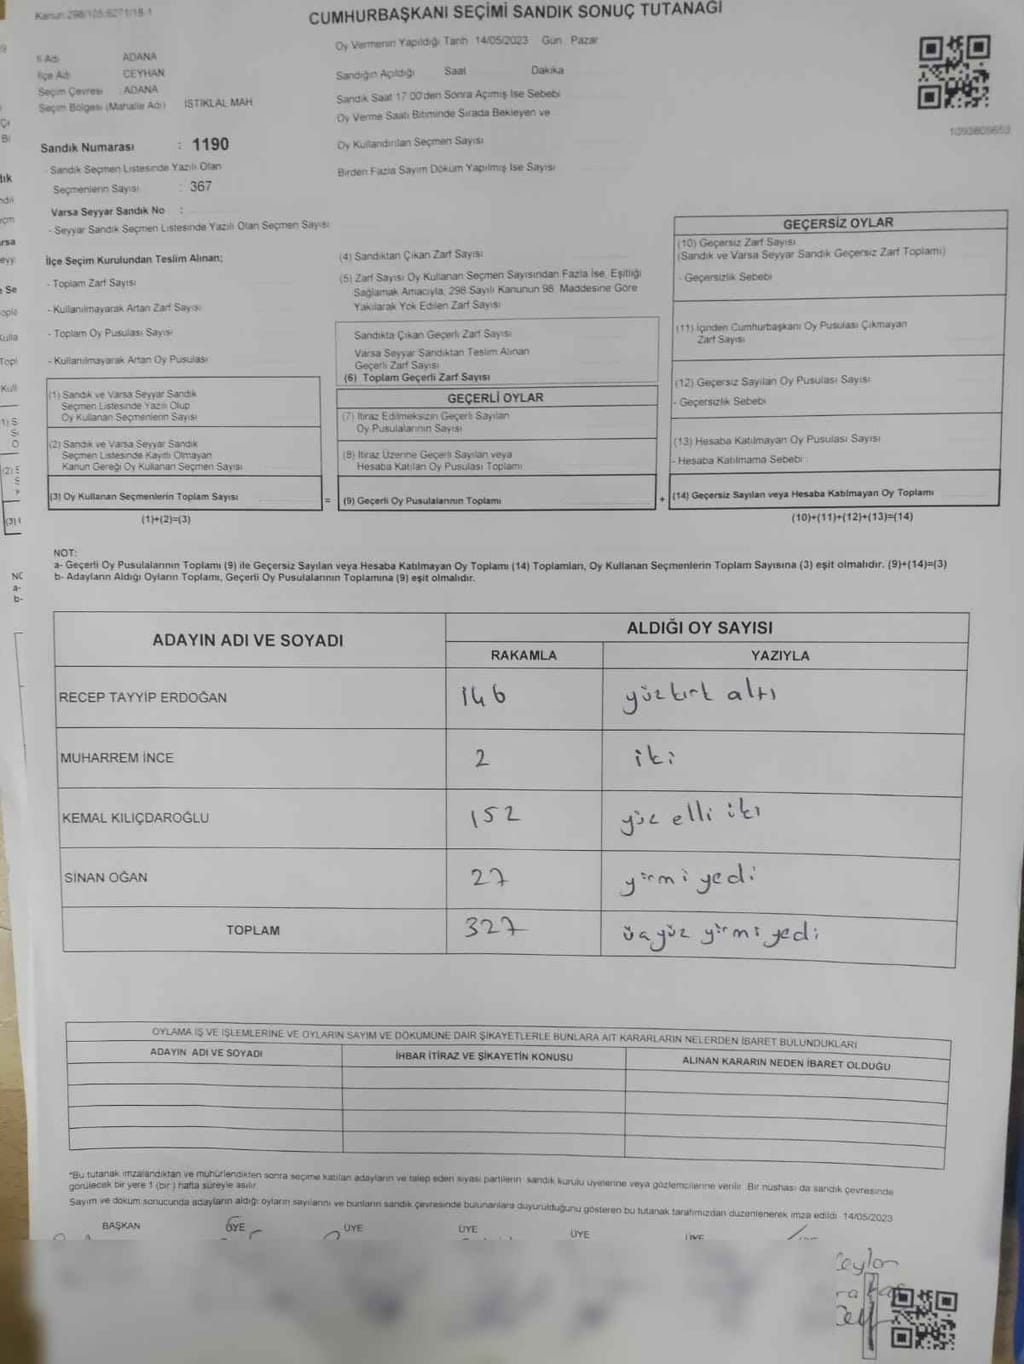 Kanun 298/105;6271/18-1
CUMHURBAŞKANI SEÇİMİ SANDIK SONUÇ TUTANAĞI
Oy Vermenin Yapıldığı Tarih 14/05/2023 Gün Pazar
İl Adı ADANA
İlçe Adı CEYHAN
Seçim Çevresi : ADANA
Seçim Bölgesi (Mahalle Adı) İSTİKLAL MAH
Sandık Numarası : 1190
- Sandık Seçmen Listesinde Yazılı Olan
Seçmenlerin Sayısı : 367
Varsa Seyyar Sandık No :
- Seyyar Sandık Seçmen Listesinde Yazılı Olan Seçmen Sayısı
Sandığın Açıldığı Saat Dakika
Sandık Saat 17:00'den Sonra Açımış İse Sebebi
Oy Verme Saati Bitiminde Sırada Bekleyen ve
Oy Kullandırılan Seçmen Sayısı
Birden Fazla Sayım Döküm Yapılmış İse Sayısı
1093809653
İlçe Seçim Kurulundan Teslim Alınan;
- Toplam Zarf Sayısı
- Kullanılmayarak Artan Zarf Sayısı
- Toplam Oy Pusulası Sayısı
- Kullanılmayarak Artan Oy Pusulası
(1) Sandık ve Varsa Seyyar Sandık
Seçmen Listesinde Yazılı Olup
Oy Kullanan Seçmenlerin Sayısı
(2) Sandık ve Varsa Seyyar Sandık
Seçmen Listesinde Kayıtlı Olmayan
Kanun Gereği Oy Kullanan Seçmen Sayısı
(3) Oy Kullanan Seçmenlerin Toplam Sayısı
(1)+(2)=(3)
(4) Sandıktan Çıkan Zarf Sayısı
(5) Zarf Sayısı Oy Kullanan Seçmen Sayısından Fazla İse, Eşitliği
Sağlamak Amacıyla, 298 Sayılı Kanunun 98. Maddesine Göre
Yakılarak Yok Edilen Zarf Sayısı
Sandıkta Çıkan Geçerli Zarf Sayısı
Varsa Seyyar Sandıktan Teslim Alınan
Geçerli Zarf Sayısı
(6) Toplam Geçerli Zarf Sayısı
GEÇERLİ OYLAR
(7) İtiraz Edilmeksizin Geçerli Sayılan
Oy Pusulalarının Sayısı
(8) İtiraz Üzerine Geçerli Sayılan veya
Hesaba Katılan Oy Pusulası Toplamı
= (9) Geçerli Oy Pusulalarının Toplamı
GEÇERSİZ OYLAR
(10) Geçersiz Zarf Sayısı
(Sandık ve Varsa Seyyar Sandık Geçersiz Zarf Toplamı)
- Geçersizlik Sebebi
(11) İçinden Cumhurbaşkanı Oy Pusulası Çıkmayan
Zarf Sayısı
(12) Geçersiz Sayılan Oy Pusulası Sayısı
- Geçersizlik Sebebi
(13) Hesaba Katılmayan Oy Pusulası Sayısı
- Hesaba Katılmama Sebebi
+ (14) Geçersiz Sayılan veya Hesaba Katılmayan Oy Toplamı
(10)+(11)+(12)+(13)=(14)
NOT:
a- Geçerli Oy Pusulalarının Toplamı (9) ile Geçersiz Sayılan veya Hesaba Katılmayan Oy Toplamı (14) Toplamları, Oy Kullanan Seçmenlerin Toplam Sayısına (3) eşit olmalıdır. (9)+(14)=(3)
b- Adayların Aldığı Oyların Toplamı, Geçerli Oy Pusulalarının Toplamına (9) eşit olmalıdır.
ADAYIN ADI VE SOYADI ALDIĞI OY SAYISI
RAKAMLA YAZIYLA
RECEP TAYYİP ERDOĞAN 146 yüzkırk altı
MUHARREM İNCE 2 iki
KEMAL KILIÇDAROĞLU 152 yüz elli iki
SİNAN OĞAN 27 yirmi yedi
TOPLAM 327 üçyüz yirmi yedi
OYLAMA İŞ VE İŞLEMLERİNE VE OYLARIN SAYIM VE DÖKÜMÜNE DAİR ŞİKAYETLERLE BUNLARA AİT KARARLARIN NELERDEN İBARET BULUNDUKLARI
ADAYIN ADI VE SOYADI İHBAR İTİRAZ VE ŞİKAYETİN KONUSU ALINAN KARARIN NEDEN İBARET OLDUĞU
*Bu tutanak imzalandıktan ve mühürlendikten sonra seçime katılan adayların ve talep eden siyasi partilerin sandık kurulu üyelerine veya gözlemcilerine verilir. Bir nüshası da sandık çevresinde
görülecek bir yere 1 (bir ) hafta süreyle asılır
Sayım ve döküm sonucunda adayların aldığı oyların sayılarını ve bunların sandık çevresinde bulunanlara duyurulduğunu gösteren bu tutanak tarafımızdan düzenlenerek imza edildi 14/05/2023
BAŞKAN ÜYE ÜYE ÜYE ÜYE ÜYE
Ceylan